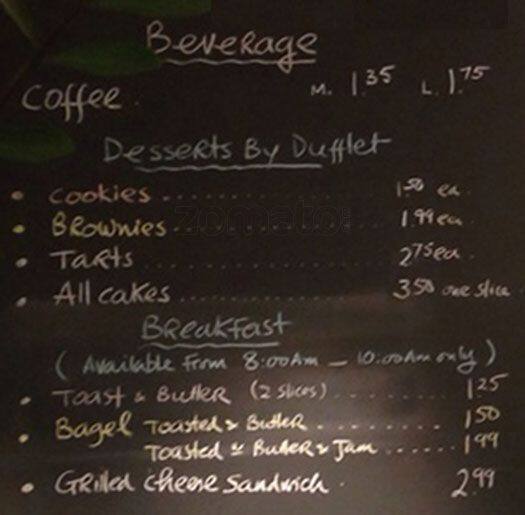 Beverage
Coffee. M. 1.35 L. 1.75
Desserts By Dufflet
• Cookies ........ 1.50 ea.
• Brownies ........ 1.99 ea.
• Tarts ........ 2.75 ea.
• All cakes ........ 3.50 one slice
zomato.com
Breakfast
( Available From 8:00 Am — 10:00 Am only )
• Toast & Butter (2 slices) ........ 1.25
• Bagel Toasted & Butter ........ 1.50
Toasted & Butter & Jam ...... 1.99
• Grilled cheese sandwich . 2.99